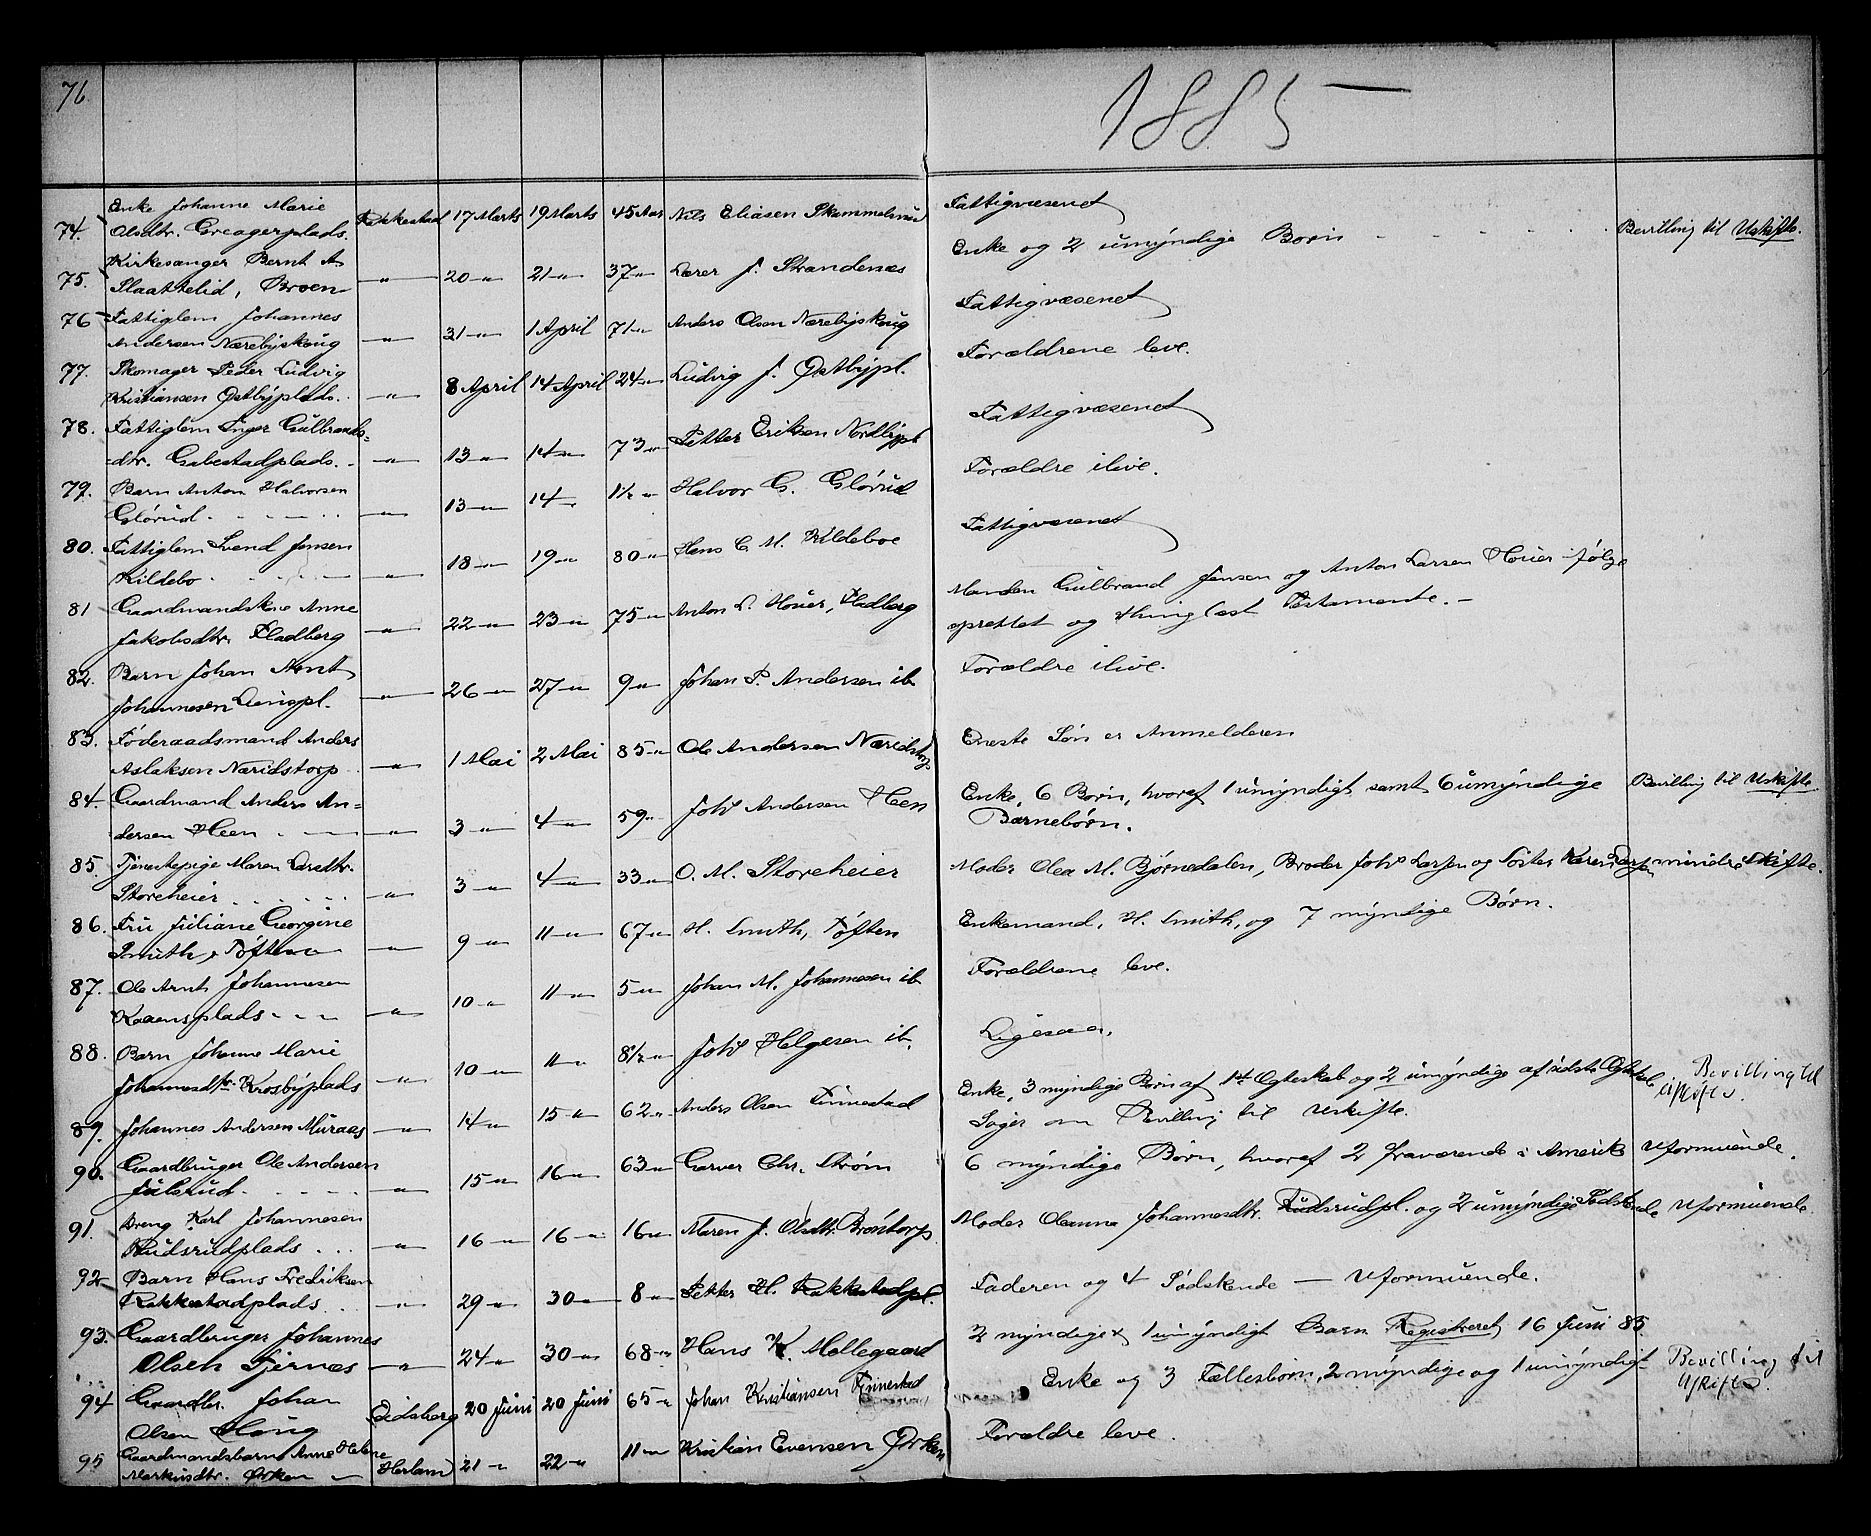 76
1885 —
74. Enke Johanne Marie Rakkestad 17 Marts 19 Marts 45 Aar Nils Eliasen Fattigvæsenet
Olsdtr. Greagerplads. Bevilling til Uskifte.
75. Kirkesanger Bernt A —"— 20 —"— 21 —"— 37 —"— Lærer J. Strandenæs Enke og 2 umyndige Børn - - - -
Slaattelid, Broen
76 Fattiglem Johannes —"— 31 —"— 1 April 71 —"— Anders Olsen Nærebyskoug Fattigvæsenet
Andersen Nærebyskoug
77. Skomager Peder Ludvig —"— 8 April 14 April 24 —"— Ludvig J. Østbypl. Forældrene leve.
Kristiansen Østbyplads.
78. Fattiglem Inger Gulbrands- —"— 13 —"— 14 —"— 73 —"— Petter Eriksen Nordbypl. Fattigvæsenet
-dtr. Gabestadplads.
79. Barn Anton Halvorsen —"— 13 —"— 14 —"— 1½ —"— Halvor G. Glørud Forældre ilive.
Glørud
80. Fattiglem Svend Jensen —"— 18 —"— 19 —"— 80 —"— Hans C. M. Kildeboe Fattigvæsenet
Kildebo
81 Gaardmandskone Anne —"— 22 —"— 23 —"— 75 —"— Anton L. Houer, Fladberg Manden Gulbrand Jensen og Anton Larsen Houer ifølge
Jakobsdtr. Fladberg oprettet og thinglæst Testamente. —
82. Barn Johan Arnt —"— 26 —"— 27 —"— 9 —"— Johan P. Andersen ib. Forældre ilive.
Johannesen
83. Føderaadsmand Anders —"— 1 Mai 2 Mai 85 —"— Ole Andersen Næridstorp Eneste Søn er Anmelderen
Aslaksen Næridstorp
84. Gaardmand Anders An- —"— 3 —"— 4 —"— 59 —"— Johs Andersen Heen Enke, 6 Børn, hvoraf 1 umyndigt, samt 6 umyndige Bevilling til Uskifte
dersen Heen Barnebørn.
85. Tjenestepige Maren Larsdtr. —"— 3 —"— 4 —"— 33 —"— O. M. Storeheier Moder Olea M. Bjørnedalen, Broder Johs Larsen og Søster Karen Larsen mindre Skifte.
Storeheier
86. Fru Juliane Georgine —"— 9 —"— 11 —"— 67 —"— H. Smith, Tøften Enkemand, H. Smith, og 7 myndige Børn.
Smith, Tøften
87. Ole Arnt Johannesen —"— 10 —"— 11 —"— 5 —"— Johan M. Johannesen ib. Forældrene leve.
Kaaensplads
88. Barn Johanne Marie —"— 10 —"— 11 —"— 8½ —"— Johs Helgesen ib. Ligesaa.
Johannesdtr. Krosbyplads
89. Johannes Andersen Muraas —"— 14 —"— 15 —"— 62 —"— Anders Olsen Finnestad Enke, 3 myndige Børn af 1st Egteskab og 2 umyndige af sidste Egteskab Bevilling til
Søger om Bevilling til Uskifte. Uskifte.
90. Gaardbruger Ole Andersen —"— 15 —"— 16 —"— 63 —"— Garver Chr. Strøm 6 myndige Børn, hvoraf 2 fraværende i Amerika Uformuende.
Julsrud
91. Dreng Karl Johannesen —"— 16 —"— 16 —"— 16 —"— Maren J. Olsdtr. Brøntorp Moder Oleanna Johannesdtr. Rudsrudpl. og 2 umyndige Sødskende Uformuende.
Rudsrudplads
92 Barn Hans Fredriksen —"— 29 —"— 30 —"— 8 —"— Petter H. Rakkestadpl. Faderen og 4 Sødskende — Uformuende.
Rakkestadplads
93. Gaardbruger Johannes —"— 24 —"— 30 —"— 68 —"— Hans K. Møllegaard 2 myndige & 1 umyndigt Barn Registreret 16 Juni 85
Olsen Tjernæs
94 Gaardbr. Johan Eidsberg 20 Juni 20 Juni 65 —"— Johan Kristiansen Finnestad Enke og 3 Fællesbørn, 2 myndige og 1 umyndigt Bevilling til
Olsen Haug Uskifte.
95 Gaardmandsbarn Anne Helene Herland 21 —"— 22 —"— 11 —"— Kristian Evensen Ørken Forældre leve.
Markusdtr. Ørken